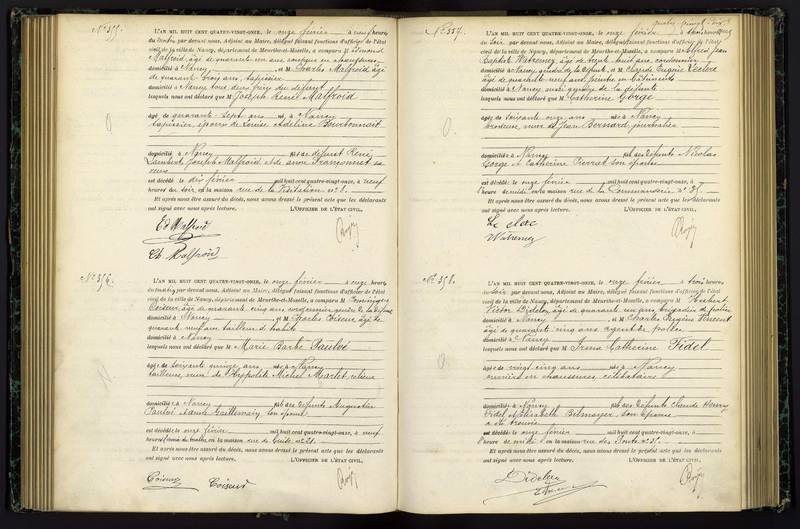 N° 355.
L'AN MIL HUIT CENT QUATRE-VINGT-ONZE, le onze février à neuf heures
du matin par devant nous, Adjoint au Maire, délégué faisant fonctions d'officier de l'état
civil de la ville de Nancy, département de Meurthe-et-Moselle, a comparu M Edmond
Malfroid, âgé de quarante
de quarante trois ans, tapissier
domicilié à Nancy, tous deux frères du défunt
lesquels nous ont déclaré que M Joseph René Malfroid
âgé de quarante sept ans né à Nancy
tapissier, époux de Louise Adeline Bourbonnait
domicilié à Nancy fils de défunt René
Lambert Joseph Malfroid et de Anne Françoinnet, sa
veuve
est décédé le dix février mil huit cent quatre-vingt-onze, à neuf
heures du soir en la maison rue de la Visitation n° 8.
Et après nous être assuré du décès, nous avons dressé le présent acte que les déclarants
ont signé avec nous après lecture. L'OFFICIER DE L'ÉTAT CIVIL,
Ed Malfroid
Ch. Malfroid
N° 356
L'AN MIL HUIT CENT QUATRE-VINGT-ONZE, le onze février à onze heures
du matin par devant nous, Adjoint au Maire, délégué faisant fonctions d'officier de l'état
civil de la ville de Nancy, département de Meurthe-et-Moselle, a comparu M Dominique
Coiseur, âgé de quarante cinq ans, cordonnier, gendre de la défunte
domicilié à Nancy et M Charles Coiseur, âgé de
quarante neuf ans tailleur d'habits
domicilié à Nancy
lesquels nous ont déclaré que M Marie Barbe Paulvé
âgée de soixante quinze ans née à Nancy
tailleuse, veuve de Hyppolite Michel Martet, relieur
domiciliée à Nancy fille des défunts Augustin
Paulvé et Anne Guillemain, son épouse
est décédée le onze février mil huit cent quatre-vingt-onze, à neuf
heures du matin, en la maison rue de Guise n° 21.
Et après nous être assuré du décès, nous avons dressé le présent acte que les déclarants
ont signé avec nous après lecture. L'OFFICIER DE L'ÉTAT CIVIL,
Coiseur Coiseur
N° 357.
L'AN MIL HUIT CENT QUATRE-VINGT-ONZE, le onze février à
du soir par devant nous, Adjoint au Maire, délégué faisant fonctions d'officier de l'état
civil de la ville de Nancy, département de Meurthe-et-Moselle, a comparu M Alfred Jean
Baptiste Watremez, âgé de trente huit ans, cordonnier
domicilié à Nancy, gendre de la défunte, et M Claude Eugène Leclerc
âgé de quarante neuf ans, peintre en bâtiments
domicilié à Nancy, aussi gendre de la défunte
lesquels nous ont déclaré que M Catherine Gorge
âgée de soixante onze ans née à Nancy
brodeuse, veuve de Jean Bernard, journalier
domiciliée à Nancy fille des défunts Nicolas
Gorge et Catherine Pierrat, son épouse
est décédée le onze février mil huit cent quatre-vingt-onze, à
heures de midi en la maison rue de la Commanderie n° 37.
Et après nous être assuré du décès, nous avons dressé le présent acte que les déclarants
ont signé avec nous après lecture. L'OFFICIER DE L'ÉTAT CIVIL,
Le clerc
Watremez
N° 358.
L'AN MIL HUIT CENT QUATRE-VINGT-ONZE, le onze février à trois heures
du soir par devant nous, Adjoint au Maire, délégué faisant fonctions d'officier de l'état
civil de la ville de Nancy, département de Meurthe-et-Moselle, a comparu M Hubert
Victor Didelon, âgé de quarante un ans, brigadier de police
domicilié à Nancy et M Charles Eugène Vincent
âgé de quarante cinq ans agent de police
domicilié à Nancy
lesquels nous ont déclaré que M Irma Catherine Fidel
âgée de vingt cinq ans née à Nancy
ouvrière en chaussures, célibataire
domiciliée à Nancy fille des défunts Claude Henry
Fidel et Elisabeth Bilmayer, son épouse
a été trouvée
est décédée le onze février mil huit cent quatre-vingt-onze, à
heure de midi en la maison rue des Ponts n° 31.
Et après nous être assuré du décès, nous avons dressé le présent acte que les déclarants
ont signé avec nous après lecture. L'OFFICIER DE L'ÉTAT CIVIL,
Didelon